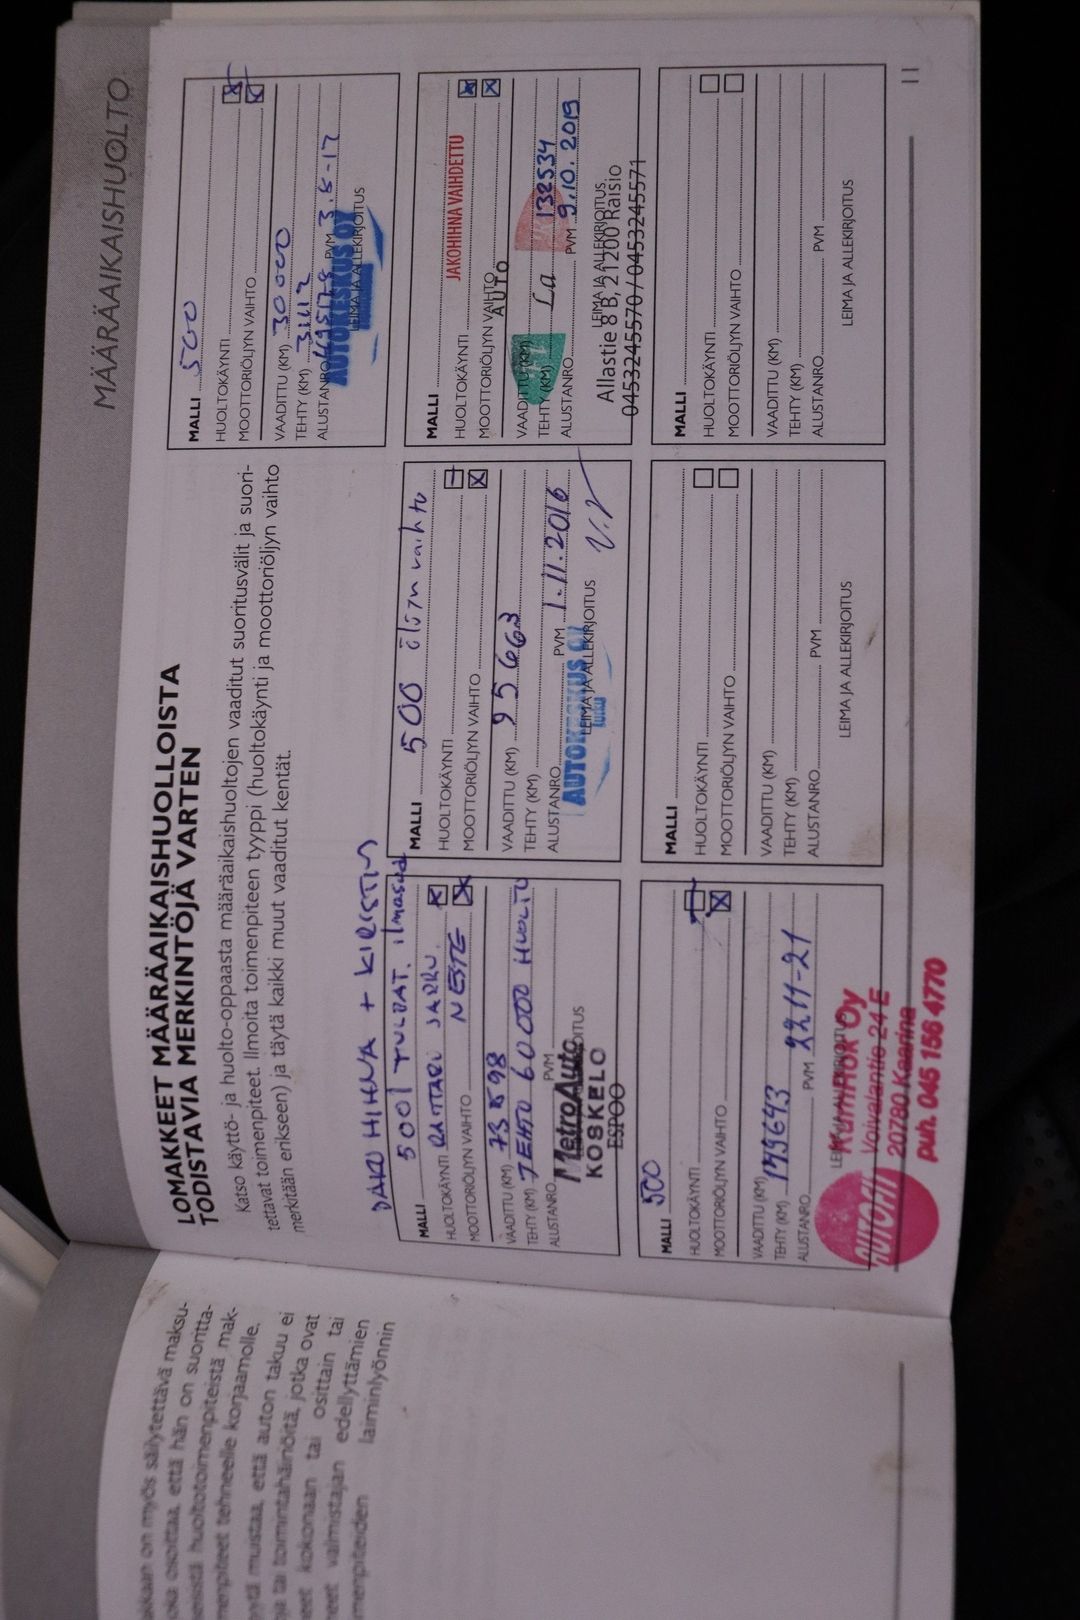 MÄÄRÄAIKAISHUOLTO
LOMAKKEET MÄÄRÄAIKAISHUOLLOISTA
TODISTAVIA MERKINTÖJÄ VARTEN
Katso käyttö- ja huolto-oppaasta määräaikaishuoltojen vaaditut suoritusvälit ja suori-
tettavat toimenpiteet. Ilmoita toimenpiteen tyyppi (huoltokäynti ja moottoriöljyn vaihto
merkitään erikseen) ja täytä kaikki muut vaaditut kentät.
MALLI 500
HUOLTOKÄYNTI
MOOTTORIÖLJYN VAIHTO
VAADITTU (KM) 30000
TEHTY (KM) 31112
ALUSTANRO PVM
AUTOKESKUS OY
LEIMA JA ALLEKIRJOITUS
HIHNA + KIRISTIN
MALLI 500l TULPAT.
HUOLTOKÄYNTI JARRU
MOOTTORIÖLJYN VAIHTO NESTE
VAADITTU (KM) 73898
TEHTY (KM) TEHTO 60000 HUOLTO
ALUSTANRO PVM
MetroAuto
KOSKELO
ESPOO
MALLI 500 öljyn vaihto
HUOLTOKÄYNTI
MOOTTORIÖLJYN VAIHTO
VAADITTU (KM) 95663
TEHTY (KM)
ALUSTANRO PVM 1.11.2016
AUTOKESKUS OY
LEIMA JA ALLEKIRJOITUS
MALLI
JAKOHIHNA VAIHDETTU
HUOLTOKÄYNTI
MOOTTORIÖLJYN VAIHTO
AUTO
VAADITTU (KM)
TEHTY (KM) La 132534
ALUSTANRO PVM 9.10.2019
LEIMA JA ALLEKIRJOITUS
Allastie 8 B, 21200 Raisio
0453245570 / 0453245571
MALLI 500
HUOLTOKÄYNTI
MOOTTORIÖLJYN VAIHTO
VAADITTU (KM)
TEHTY (KM) 149643
ALUSTANRO PVM 22.11-21
Kuminok Oy
Voivalantie 24 E
20780 Kaarina
puh. 045 156 4770
MALLI
HUOLTOKÄYNTI
MOOTTORIÖLJYN VAIHTO
VAADITTU (KM)
TEHTY (KM)
ALUSTANRO PVM
LEIMA JA ALLEKIRJOITUS
MALLI
HUOLTOKÄYNTI
MOOTTORIÖLJYN VAIHTO
VAADITTU (KM)
TEHTY (KM)
ALUSTANRO PVM
LEIMA JA ALLEKIRJOITUS
11
on myös säilytettävä maksu-
osoittaa, että hän on suoritta-
huoltotoimenpiteistä mak-
tehneelle korjaamolle.
muistaa, että auton takuu ei
tai toimintahäiriöitä, jotka ovat
kokonaan tai osittain tai
valmistajan edellyttämien
laiminlyönnin